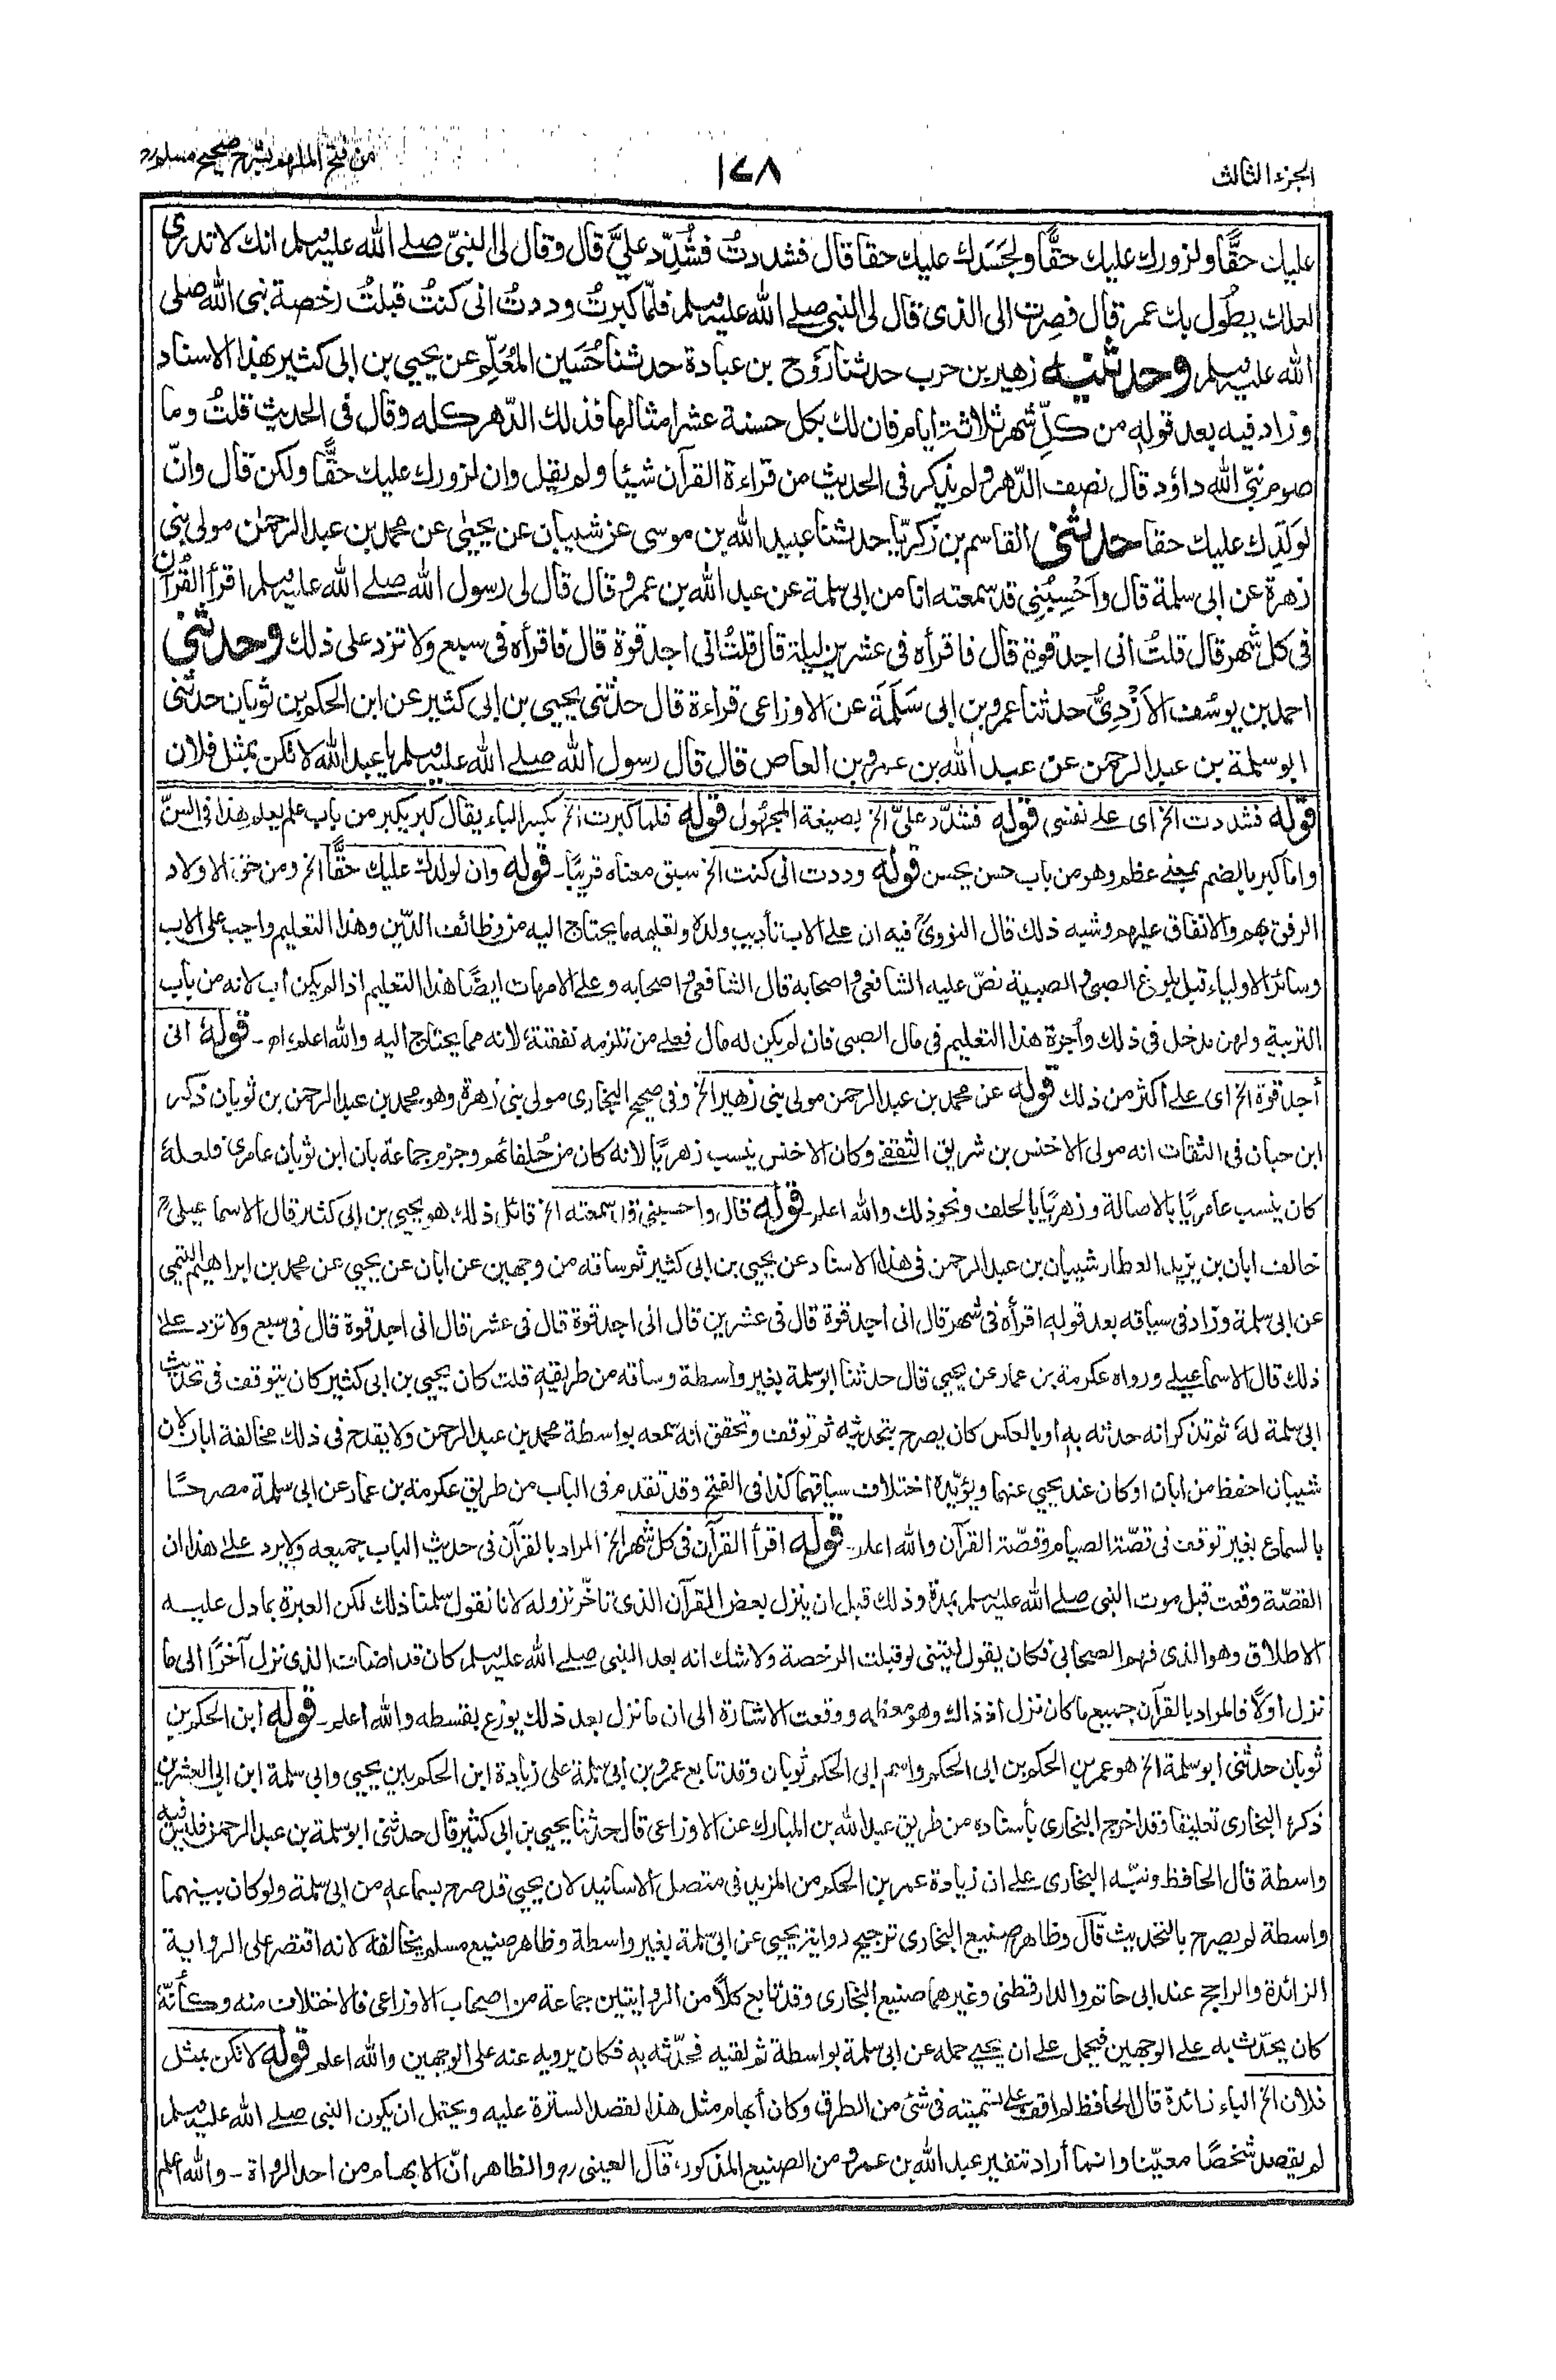 الجزء الثالث
١٧٨
من فتح الملهم بشرح صحيح مسلم
عليك حقًّا ولزورك عليك حقًّا ولجَسَدك عليك حقا قال فشددتُ فشُدِّد عليَّ قال وقال لى النبىّ صلے الله عليه وسلم انك لا تدرى
لعلك يطُول بك عمر قال فصِرت الى الذى قال لى النبى صلے الله عليه وسلم فلمّا كبرتُ وددتُ انى كنتُ قبلتُ رخصة نبى الله صلى
الله عليه وسلم وحدثنيه زهير بن حرب حدثنا رَوح بن عبادة حدثنا حُسَين المُعَلِّم عن يحيى بن ابى كثير بهذا الاسناد
وزاد فيه بعد قوله من كلِّ شهر ثلاثة ايام فان لك بكل حسنة عشر امثالها فذلك الدّهر كله وقال فى الحديث قلتُ وما
صوم نبىّ الله داؤد قال نصف الدّهر ولم يذكر فى الحديث من قراءة القرآن شيئا ولم يقل وان لزورك عليك حقًّا ولكن قال وانّ
لوَلَدِك عليك حقا حدثنى القاسم بن زكريّا حدثنا عبيد الله بن موسى عن شيبان عن يحيىٰ عن محمد بن عبد الرحمٰن مولى بنى
زهرة عن ابى سلمة قال واَحْسِبُنِى قد سمعته انا من ابى سلمة عن عبد الله بن عمرو قال قال لى رسول الله صلے الله عليه وسلم اقرأ القُرآن
فى كل شهر قال قلتُ انى اجد قوة قال فاقرأه فى عشرين ليلة قال قلتُ انى اجد قوة قال فاقرأه فى سبع ولا تزد على ذلك وحدثنى
احمد بن يوسُف الاَزْدِىُّ حدثنا عمرو بن ابى سَلَمَة عن الاوزاعى قراءة قال حدثنى يحيى بن ابى كثير عن ابن الحكم بن ثوبان حدثنى
ابو سلمة بن عبد الرحمٰن عن عبد الله بن عمرو بن العاص قال قال رسول الله صلے الله عليه وسلم يا عبد الله لا تكن بمثل فلان
قوله فشددت الخ اى علے نفسى قوله فشدّد علىّ الخ بصيغة المجهول قوله فلما كبرت الخ بكسر الباء يقال كبر يكبر من باب علم يعلم هذا فى السنّ
واما كبر بالضم بمعنے عظم وهو من باب حسن يحسن قوله وددت انى كنت الخ سبق معناه قريبًا۔ قوله وان لولدك عليك حقًّا الخ ومن حق الاولاد
الرفق بهم والانفاق عليهم وشبه ذلك قال النووىؒ فيه ان علے الاب تأديب ولده وتعليمه ما يحتاج اليه من وظائف الدّين وهذا التعليم واجب على الاب
وسائر الاولياء قبل بلوغ الصبى والصبية نصّ عليه الشافعى واصحابه قال الشافعى واصحابه وعلے الامهات ايضًا هذا التعليم اذا لم يكن أب لانه من باب
التربية ولهن مدخل فى ذلك وأجرة هذا التعليم فى مال الصبى فان لم يكن له مال فعلے من تلزمه نفقته لانه مما يحتاج اليه والله اعلم، اھ۔ قوله انى
أجد قوة الخ اى علے اكثر من ذلك قوله عن محمد بن عبد الرحمن مولى بنى زهير الخ وفى صحيح البخارى مولى بنى زهرة وهو محمد بن عبد الرحمن بن ثوبان ذكر
ابن حبان فى الثقات انه مولى الاخنس بن شريق الثقفے وكان الاخنس ينسب زهريًا لانه كان من حُلفائهم وجزم جماعة بان ابن ثوبان عامرى فلعله
كان ينسب عامريًا بالاصالة وزهريًا بالحلف ونحو ذلك والله اعلم۔ قوله قال واحسبنى قد سمعته الخ قائل ذلك هو يحيى بن ابى كثير قال الاسماعيلىؒ
خالف ابان بن يزيد العطار شيبان بن عبد الرحمن فى هذا الاسناد عن يحيى بن ابى كثير ثم ساقه من وجهين عن ابان عن يحيى عن محمد بن ابراهيم التيمى
عن ابى سلمة وزاد فى سياقه بعد قوله اقرأه فى شهر قال انى اجد قوة قال فى عشرين قال انى اجد قوة قال فى عشر قال انى اجد قوة قال فى سبع ولا تزد علے
ذلك قال الاسماعيلے ورواه عكرمة بن عمار عن يحيى قال حدثنا ابو سلمة بغير واسطة وساقه من طريقه قلت كان يحيى بن ابى كثير كان يتوقف فى تحديث
ابى سلمة لهٗ ثم تذكر انه حدثه به او بالعكس كان يصرح بتحديثه ثم توقف وتحقق انه سمعه بواسطة محمد بن عبد الرحمن ولا يقدح فى ذلك مخالفة ابان لان
شيبان احفظ من ابان او كان عند يحيى عنهما ويؤيّده اختلاف سياقهما كذا فى الفتح وقد تقدم فى الباب من طريق عكرمة بن عمار عن ابى سلمة مصرحًا
بالسماع بغير توقف فى قصّة الصيام وقصّة القرآن والله اعلم۔ قوله اقرأ القرآن فى كل شهر الخ المراد بالقرآن فى حديث الباب جميعه ولا يرد علے هذا ان
القصّة وقعت قبل موت النبى صلے الله عليه وسلم بمدة وذلك قبل ان ينزل بعض القرآن الذى تاخّر نزوله لانا نقول سلمنا ذلك لكن العبرة بما دل عليه
الاطلاق وهو الذى فهم الصحابى فكان يقول ليتنى لو قبلت الرخصة ولا شك انه بعد النبى صلے الله عليه وسلم كان قد اضاف الذى نزل آخرًا الى ما
نزل اولًا فالمراد بالقرآن جميع ما كان نزل اذ ذاك وهو معظمه ووقعت الاشارة الى ان ما نزل بعد ذلك يوزع بقسطه والله اعلم۔ قوله ابن الحكم بن
ثوبان حدثنى ابو سلمة الخ هو عمر بن الحكم بن ابى الحكم واسم ابى الحكم ثوبان وقد تابع عمرو بن ابى سلمة على زيادة ابن الحكم بين يحيى وابى سلمة ابن ابى العشرين
ذكره البخارى تعليقا وقد اخرج البخارى بأسناده من طريق عبد الله بن المبارك عن الاوزاعى قال حدثنا يحيى بن ابى كثير قال حدثنى ابو سلمة بن عبد الرحمن فليس فيه
واسطة قال الحافظ ونبّه البخارى علے ان زيادة عمر بن الحكم من المزيد فى متصل الاسانيد لان يحيى قد صرح بسماعه من ابى سلمة ولو كان بينهما
واسطة لم يصرح بالتحديث قال وظاهر صنيع البخارى ترجيح رواية يحيى عن ابى سلمة بغير واسطة وظاهر صنيع مسلم يخالفه لانه اقتصر على الرواية
الزائدة والراجح عند ابى حاتم والدارقطنى وغيرهما صنيع البخارى وقد تابع كلًّا من الروايتين جماعة من اصحاب الاوزاعى فالاختلاف منه وكأنّهٗ
كان يحدّث به علے الوجهين فيحمل علے ان يحيے حمله عن ابى سلمة بواسطة ثم لقيه فحدّثه به فكان يرويه عنه على الوجهين والله اعلم قوله لا تكن بمثل
فلان الخ الباء زائدة قال الحافظ لم اقف علے تسميته فى شئ من الطرق وكان أبهام مثل هذا لقصد السترة عليه ويحتمل ان يكون النبى صلے الله عليه وسلم
لم يقصد شخصًا معيّنا وانما أراد تنفير عبد الله بن عمرو من الصنيع المذكور، قال العينى رح والظاهر انّ الابهام من احد الرواة۔ والله اعلم